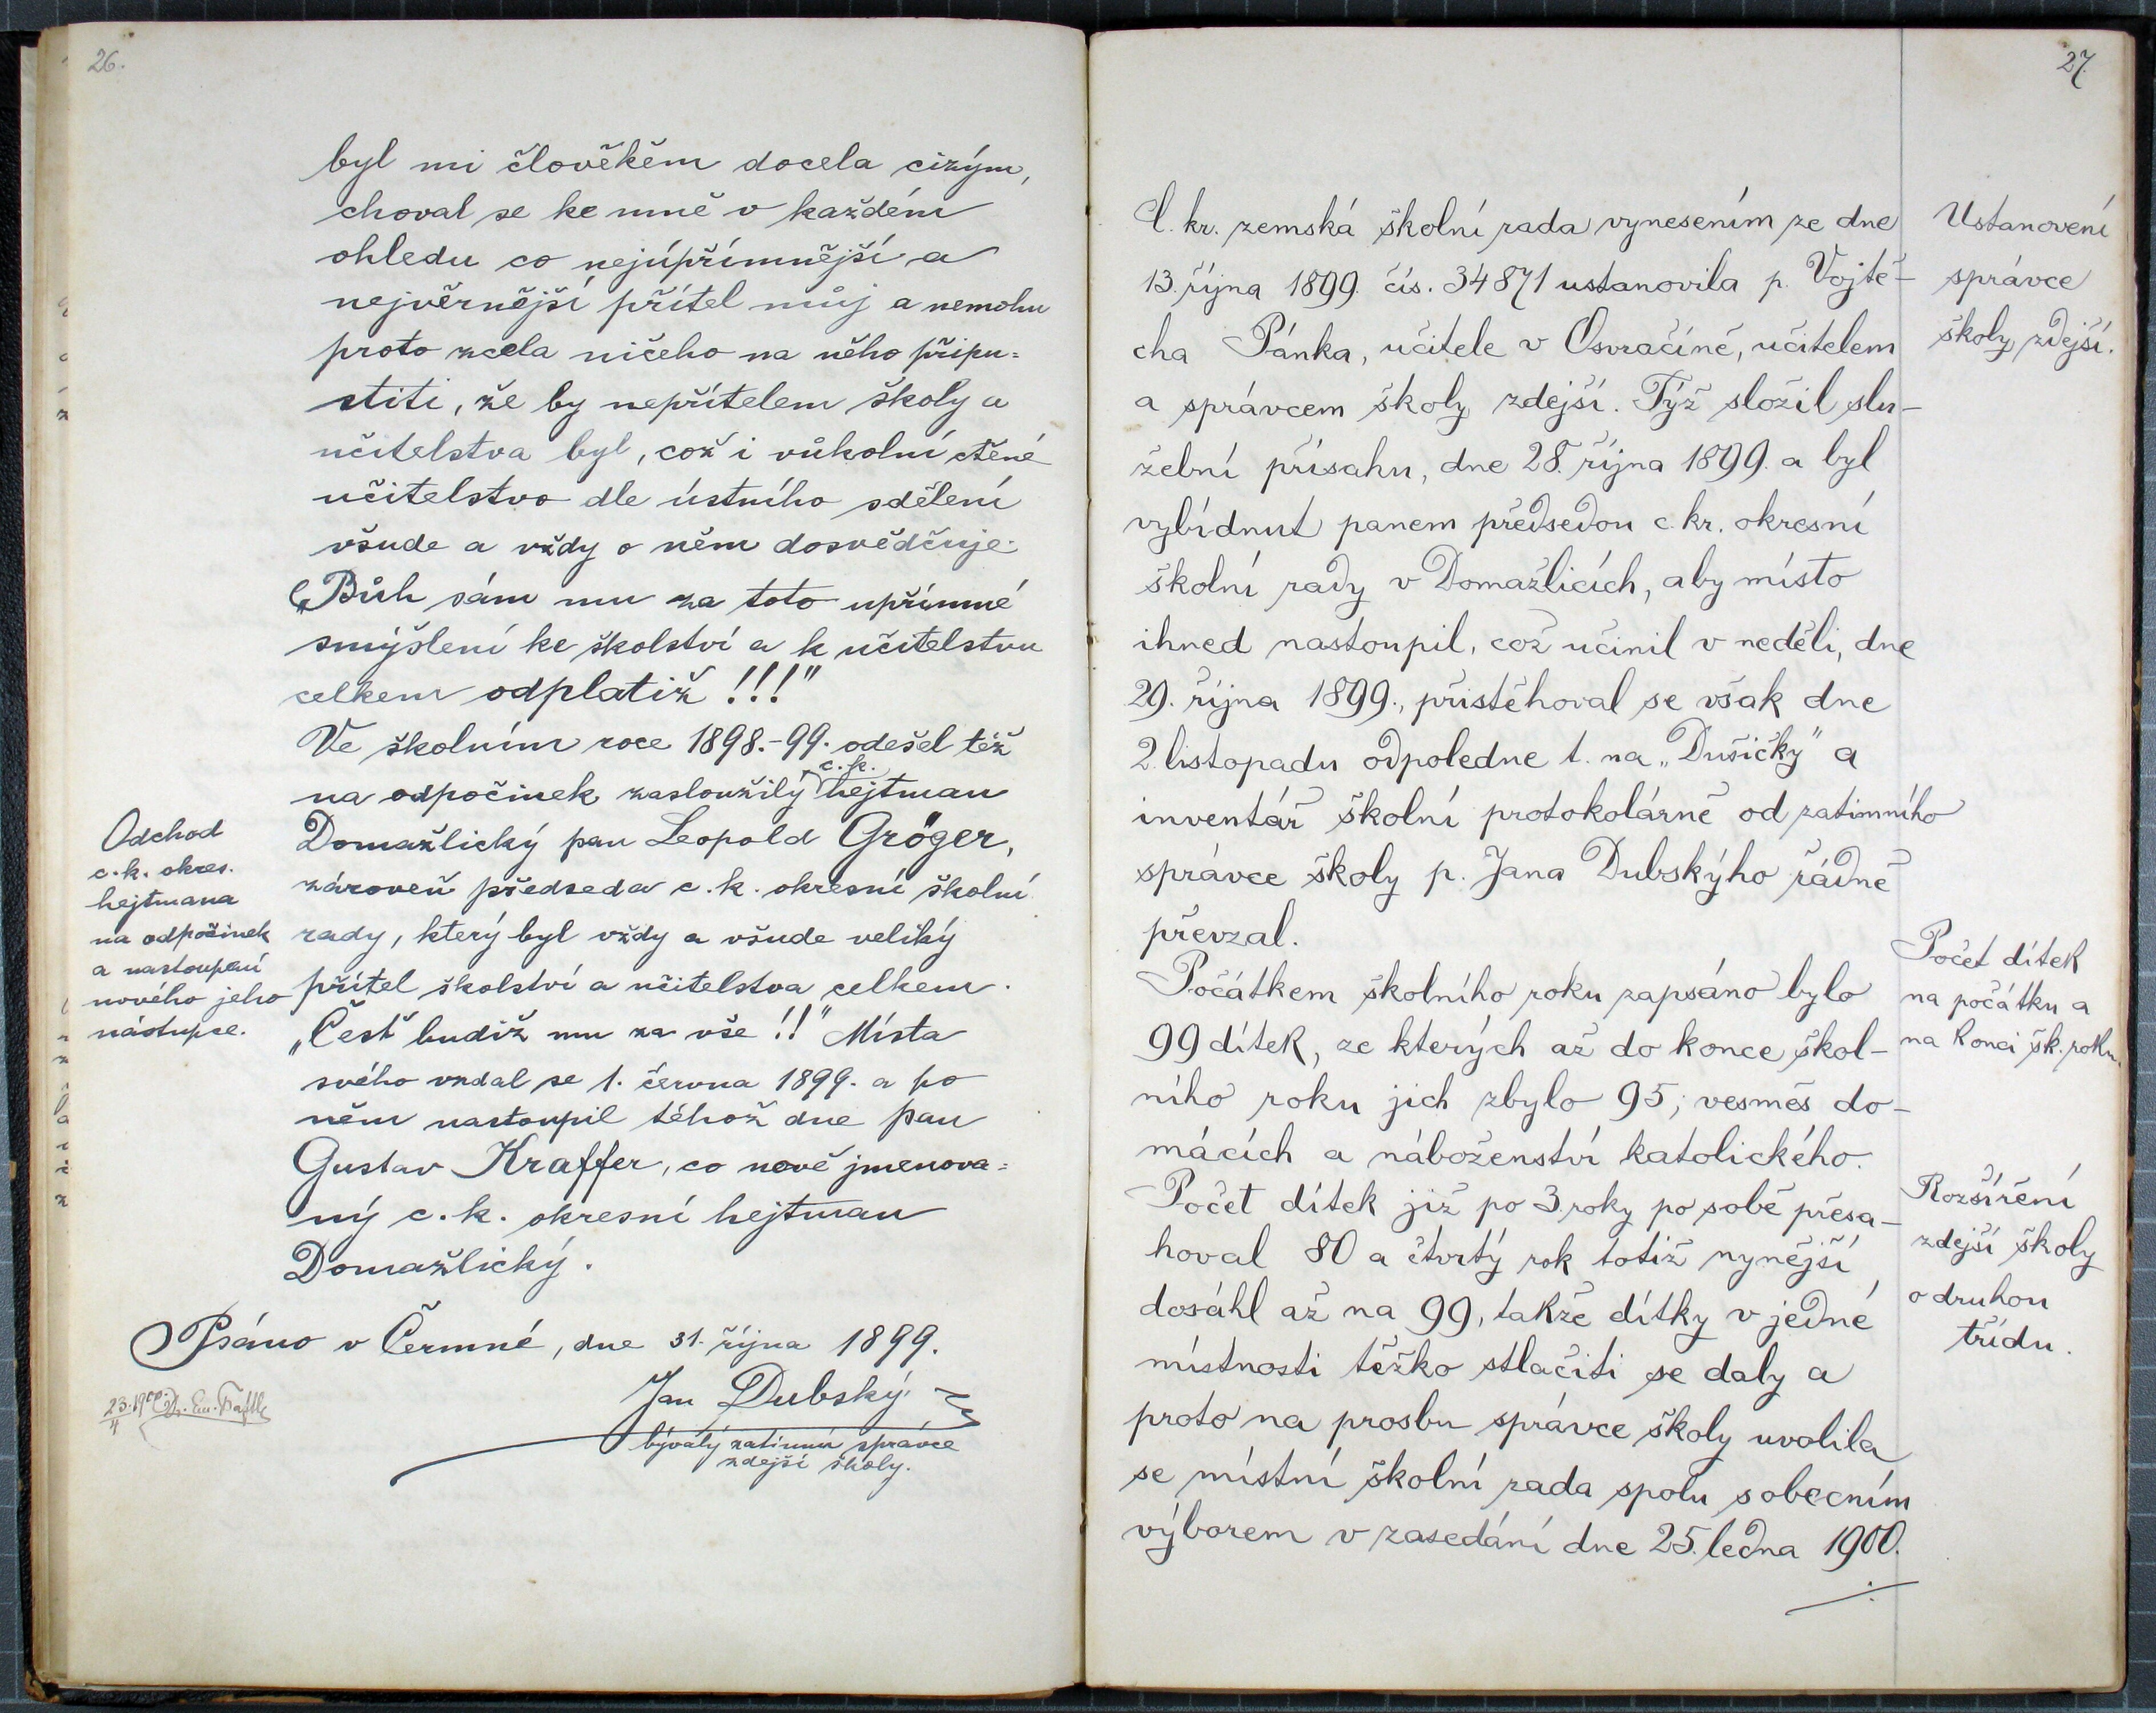 26.
byl mi člověkěm docela cizým,
choval se ke mně v každém
ohledu co nejúpřímnější a
nejvěrnější přítel můj a nemohu
proto zcela ničeho na něho připu=
stiti, že by nepřítelem školy a
učitelstva byl, což i vůkolní ctěné
učitelstvo dle ústního sdělení
všude a vždy o něm dosvědčuje.
„Bůh sám mu za toto upřímné
smýšlení ke školství a k učitelstvu
celkem odplatiž !!!"
Ve školním roce 1898.-99. odešel též
c. k.
na odpočinek zasloužilý hejtman
Domažlický pan Leopold Gröger,
zároveň předseda c. k. okresní školní
rady, který byl vždy a všude veliký
přítel školství a učitelstva celkem.
„Čest budiž mu za vše !!" Místa
svého vzdal se 1. června 1899. a po
něm nastoupil téhož dne pan
Gustav Kraffer, co nově jmenova=
ný c. k. okresní hejtman
Domažlický.
Odchod
c. k. okres.
hejtmana
na odpočinek
a nastoupení
nového jeho
nástupce.
Psáno v Čermné, dne 31. října 1899.
Jan Dubský
bývalý zatimní správce
zdejší školy.
23./4 1900
27.
C. kr. zemská školní rada vynesením ze dne
13. října 1899. čís. 34871 ustanovila p. Vojtě-
cha Pánka, učitele v Osvračíně, učitelem
a správcem školy zdejší. Týž složil slu-
žební přísahu, dne 28. října 1899. a byl
vybídnut panem předsedou c. kr. okresní
školní rady v Domažlicích, aby místo
ihned nastoupil, což učinil v neděli, dne
29. října 1899., přistěhoval se však dne
2. listopadu odpoledne t. na „Dušičky" a
inventář školní protokolárně od zatimního
správce školy p. Jana Dubskýho řádně
převzal.
Počátkem školního roku zapsáno bylo
99 dítek, ze kterých až do konce škol-
ního roku jich zbylo 95; vesměs do-
mácích a náboženství katolického.
Počet dítek již po 3 roky po sobě přesa-
hoval 80 a čtvrtý rok totiž nynější
dosáhl až na 99, takže dítky v jedné
místnosti těžko stlačiti se daly a
proto na prosbu správce školy uvolila
se místní školní rada spolu s obecním
výborem v zasedání dne 25. ledna 1900.
Ustanovení
správce
školy zdejší.
Počet dítek
na počátku a
na konci šk. roku.
Rozšíření
zdejší školy
o druhou
třídu.